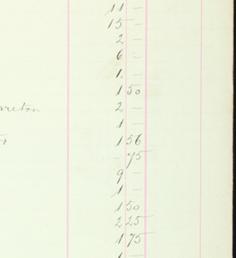 11 —
15 —
2 —
6 —
1 —
1 50
2 —
1 —
1 56
75
9 —
1 —
1 50
2 25
1 75
1 —